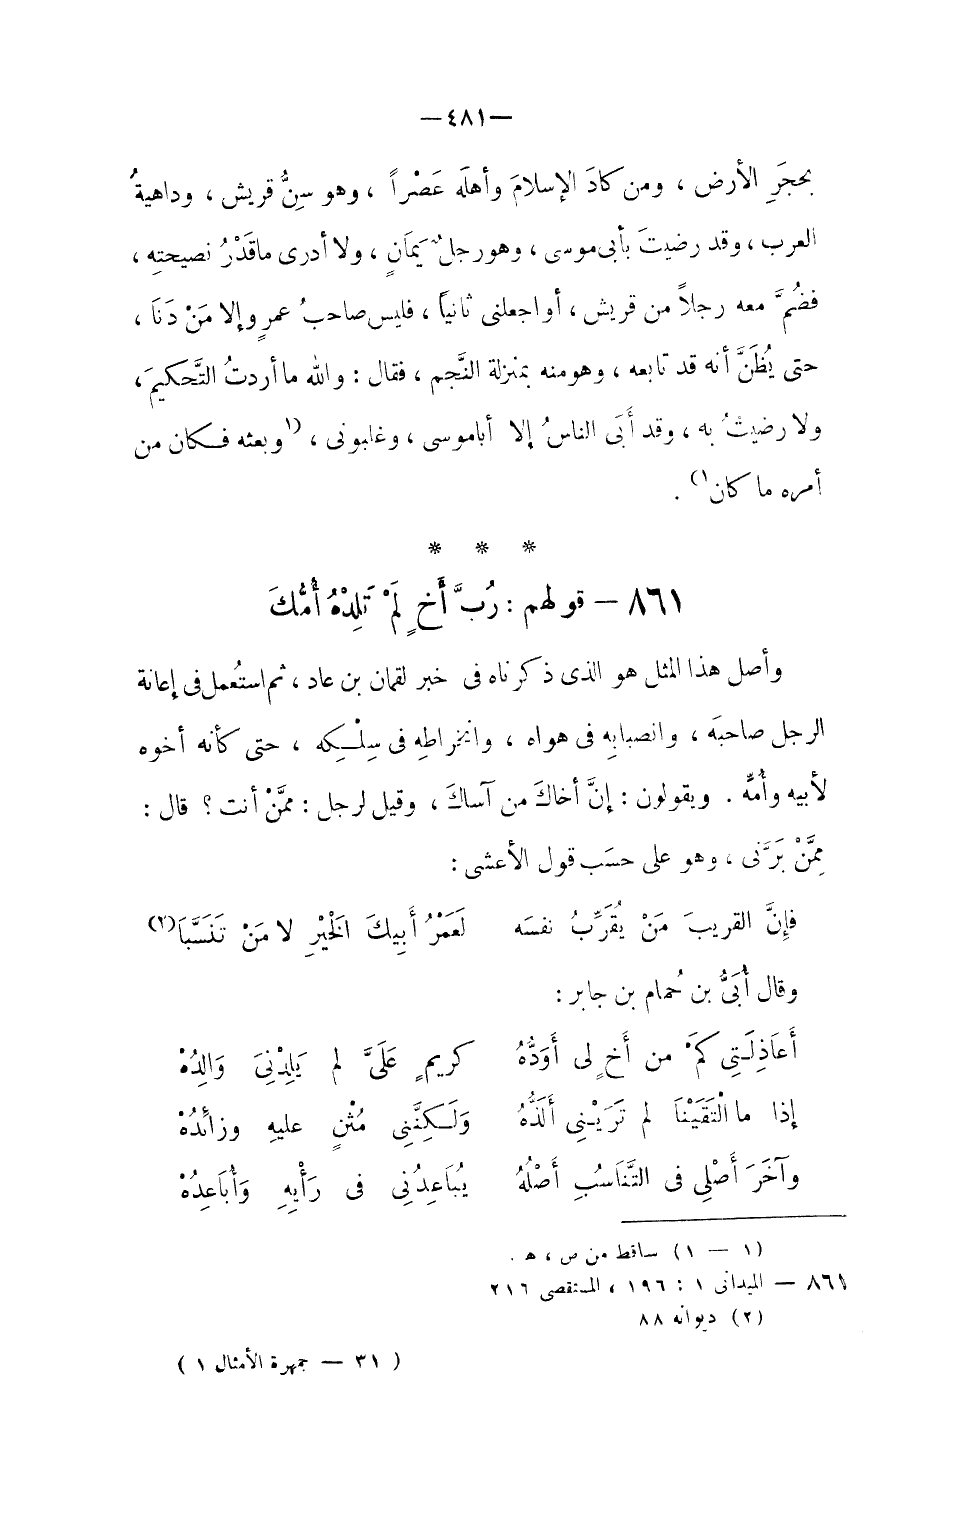 —٤٨١—
بحجَرِ الأرض ، ومن كادَ الإسلامَ وأهلَه عَصْراً ، وهو سِنُّ قريش ، وداهيةُ
العرب ، وقد رضيتَ بأبى موسى ، وهو رجلٌ يَمَانٍ ، ولا أدرى ما قَدْرُ نصيحتِه ،
فضُمَّ معه رجلاً من قريش ، أو اجعلنى ثانياً ، فليس صاحبُ عمرٍو إلا مَنْ دَنَا ،
حتى يُظَنَّ أنه قد تابعه ، وهو منه بمنزلة النَّجم ، فقال : والله ما أردتُ التَّحكيمَ ،
ولا رضيتُ به ، وقد أَبَى الناسُ إلا أباموسى ، وغلبونى ، (١وبعثه فكان من
أمره ما كان١) .
* * *
٨٦١ — قولهم : رُبَّ أَخٍ لَمْ تَلِدْهُ أُمُّكَ
وأصل هذا المثل هو الذى ذكرناه فى خبر لقمان بن عاد ، ثم استُعمل فى إعانة
الرجل صاحبَه ، وانصبابِه فى هواه ، وانخراطِه فى سِلْكِه ، حتى كأنه أخوه
لأبيه وأُمِّه . ويقولون : إنَّ أخاكَ من آساكَ ، وقيل لرجل : ممَّنْ أنت ؟ قال :
مِمَّنْ بَرَّنى ، وهو على حسَب قول الأعشى :
فإِنَّ القريبَ مَنْ يُقَرِّبُ نفسَه لَعَمْرُ أَبِيكَ الخَيْرِ لا مَنْ تَنَسَّبَا(٢)
وقال أُبَىُّ بن حُمام بن جابر :
أَعَاذِلَتِى كَمْ من أَخٍ لى أَوَدُّهُ كريمٍ عَلَىَّ لم يَلِدْنِىَ وَالِدُهْ
إذا ما الْتَقَيْنَا لم تَرَيْنِى أَلَذُّهُ وَلَكِنَّنِى مُثْنٍ عليهِ وزائدُهْ
وآخَرَ أَصْلِى فى التَّنَاسُبِ أَصْلُهُ يُبَاعِدُنِى فى رَأْيِهِ وَأُبَاعِدُهْ
(١ — ١) ساقط من ص ، ه .
٨٦١ — الميدانى ١ : ١٩٦ ، المستقصى ٢١٦
(٢) ديوانه ٨٨
( ٣١ — جمهرة الأمثال ١ )